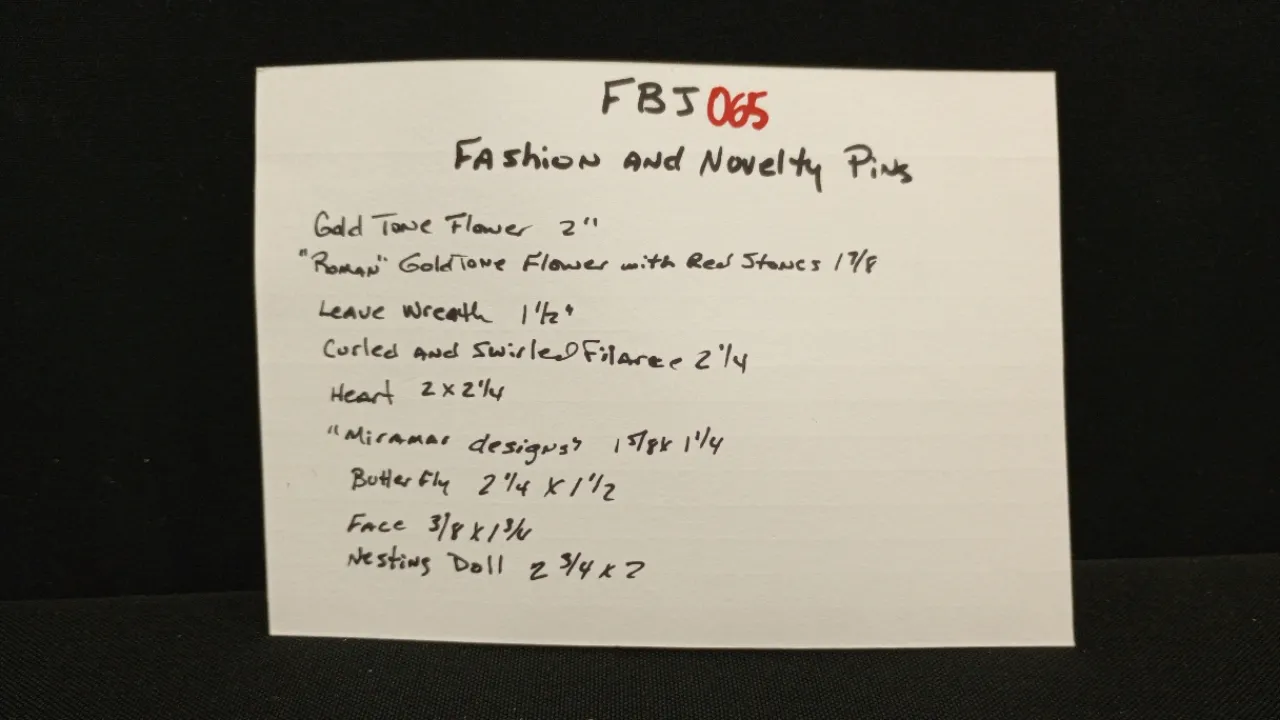 FBJ 065
Fashion and Novelty Pins
Gold Tone Flower 2"
"Roman" Gold Tone Flower with Red Stones 1 7/8
Leave Wreath 1 1/2"
Curled and Swirled 2 1/4
Heart 2 x 2 1/4
"Miramar designs" 1 5/8 x 1 1/4
Butterfly 2 1/4 x 1 1/2
Face 3/8 x 1 3/4
Nesting Doll 2 3/4 x 2